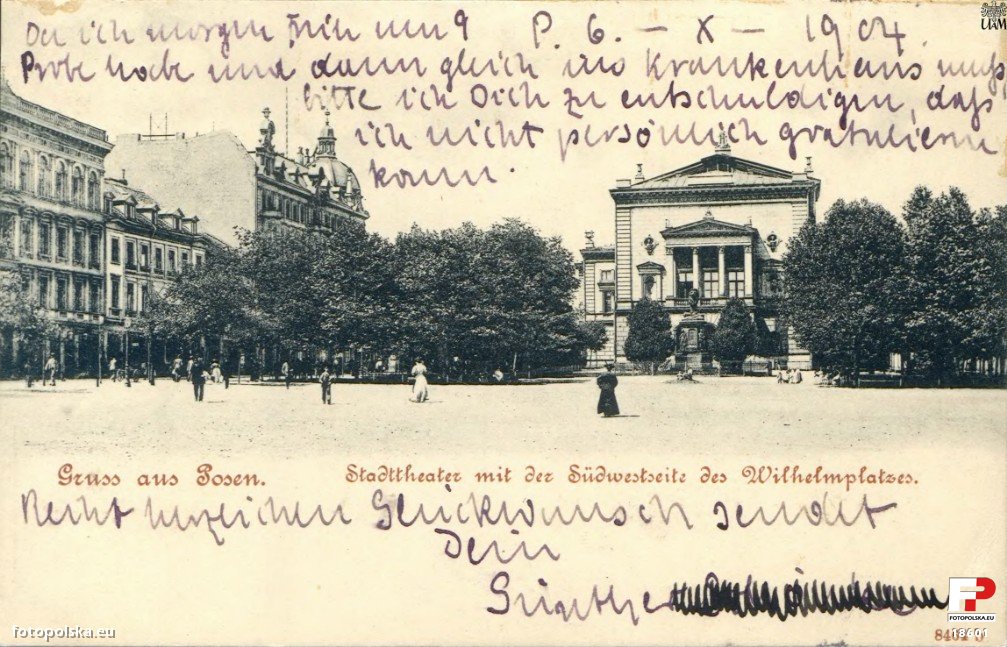 Da ich morgen früh um 9 P. 6. - X - 1904
Probe habe und dann gleich ins Krankenhaus muß,
bitte ich Dich zu entschuldigen, daß
ich nicht persönlich gratulieren
kann.
Gruss aus Posen. Stadttheater mit der Südwestseite des Wilhelmplatzes.
Recht herzlichen Glückwunsch sendet
Dein
fotopolska.eu
FP
FOTOPOLSKA.EU
18601
UAM